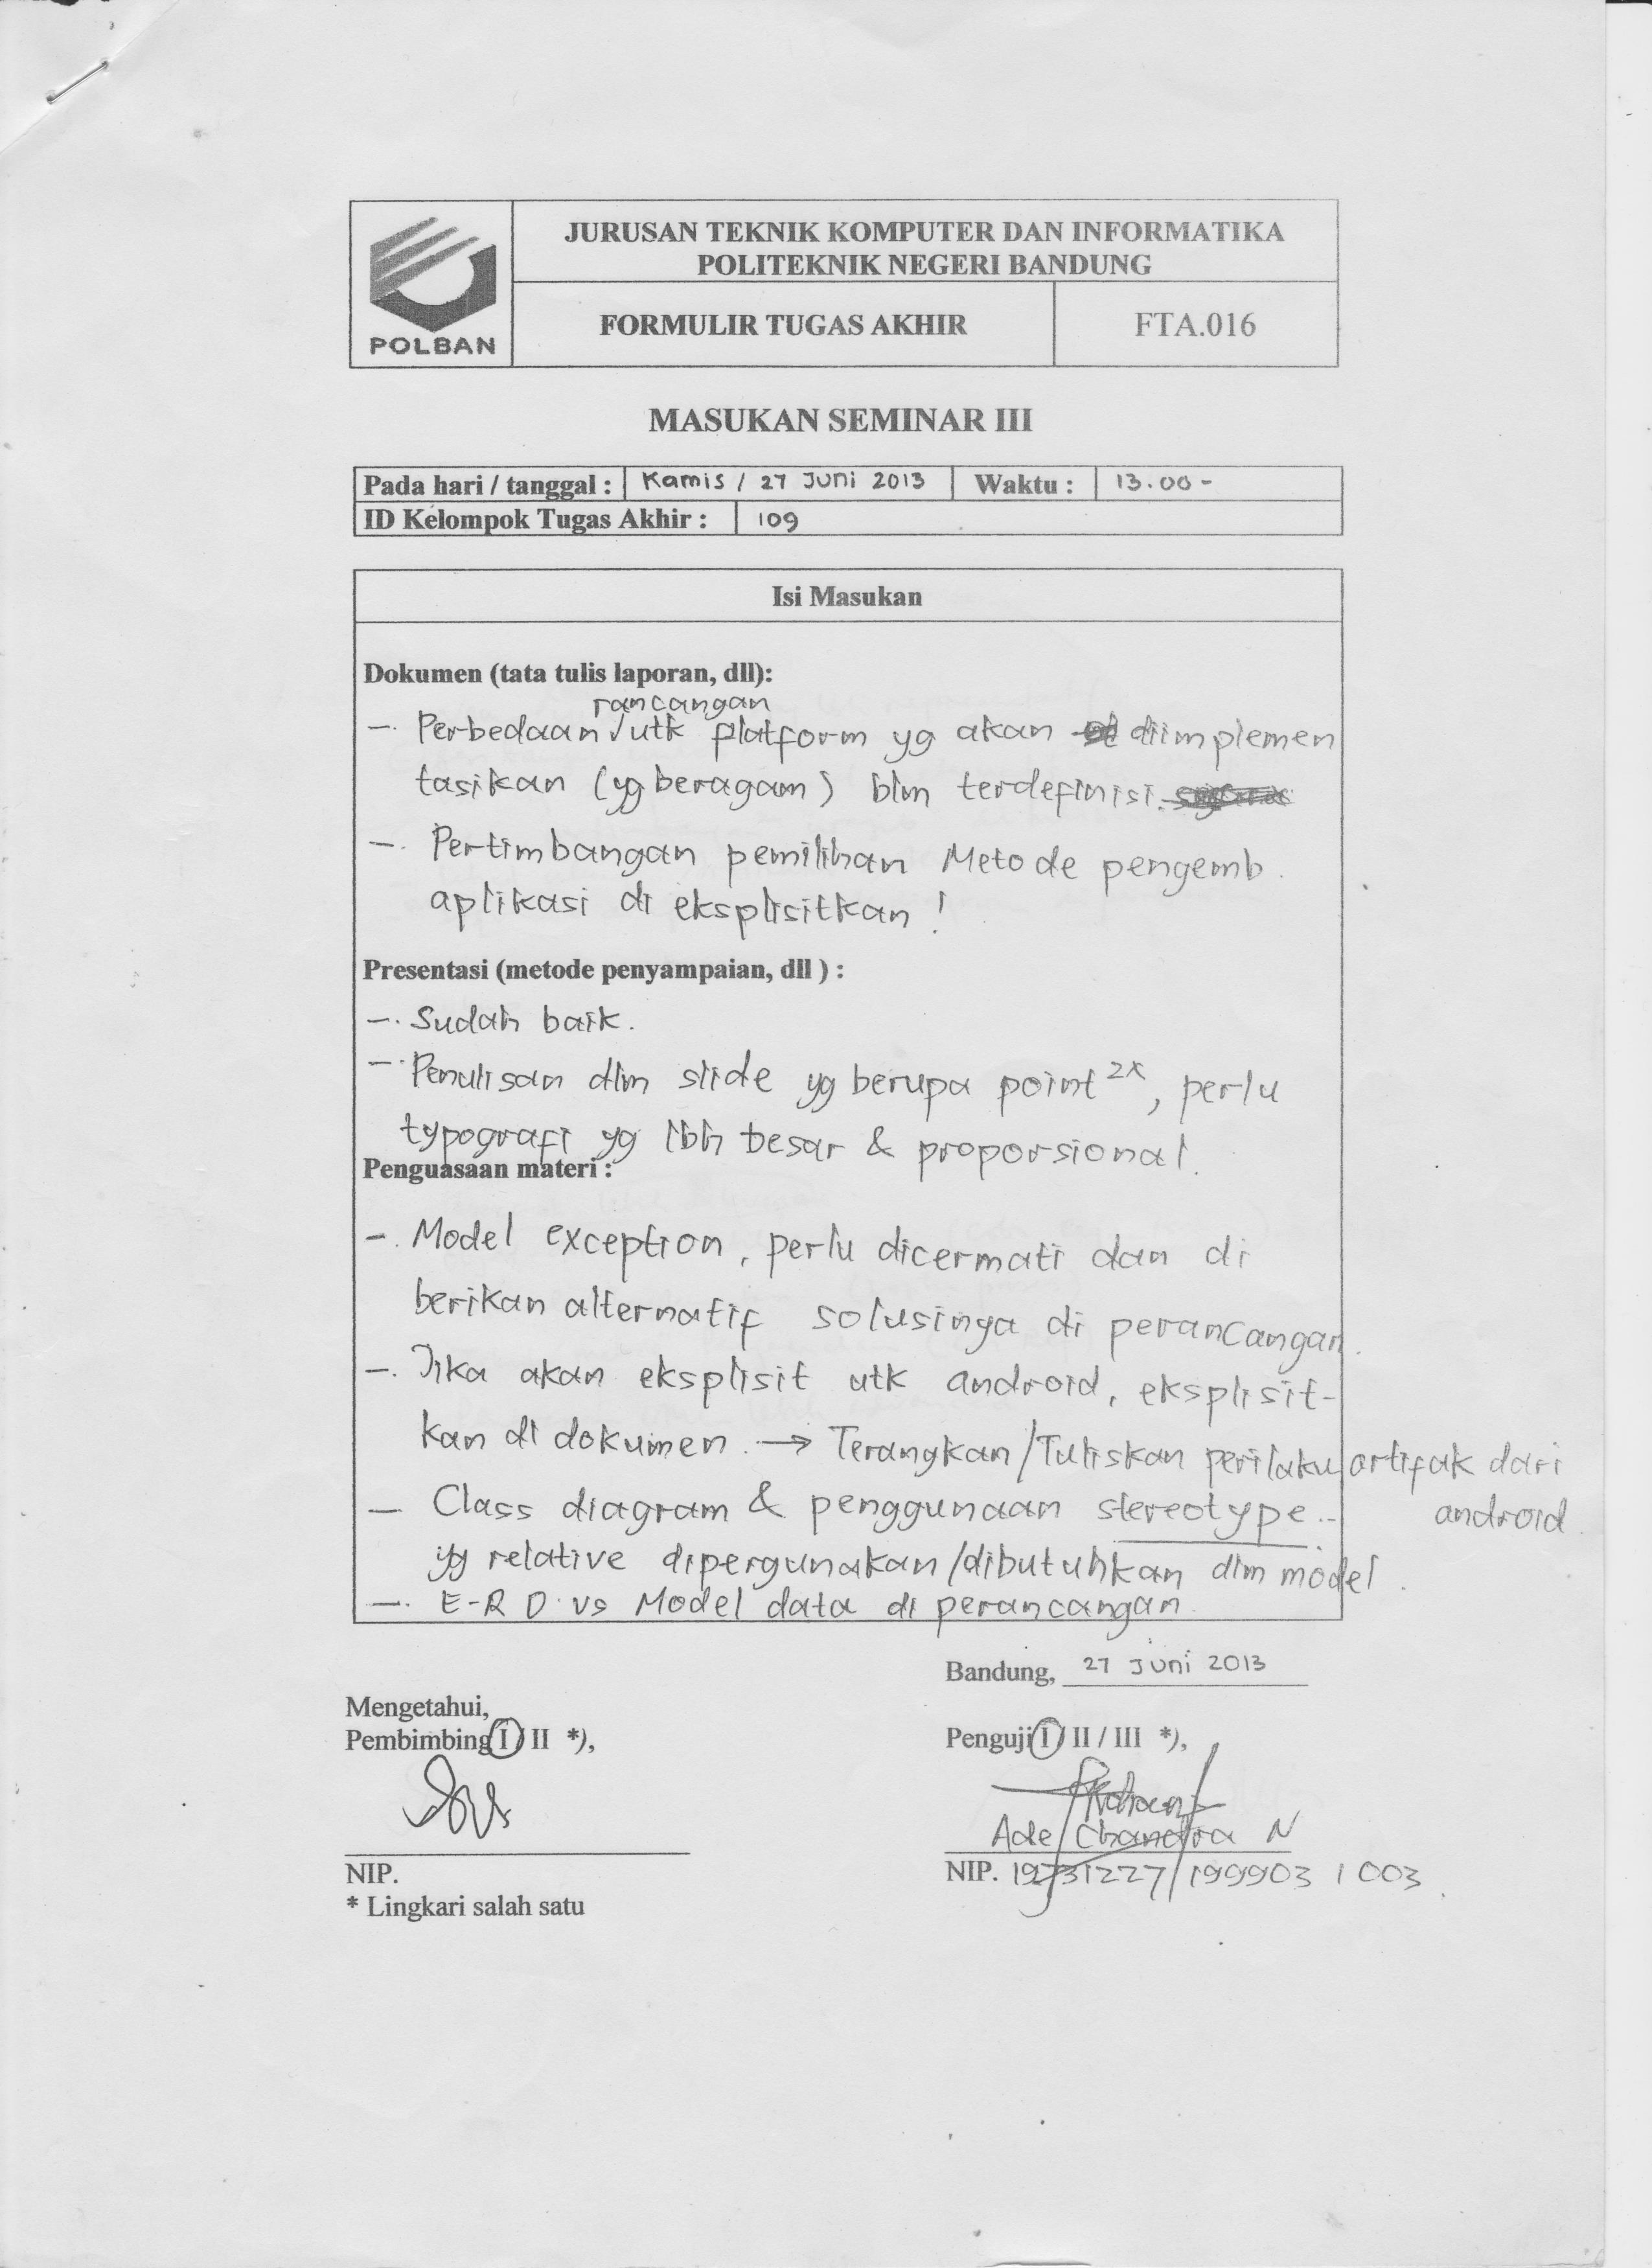 POLBAN
JURUSAN TEKNIK KOMPUTER DAN INFORMATIKA
POLITEKNIK NEGERI BANDUNG
FORMULIR TUGAS AKHIR
FTA.016
MASUKAN SEMINAR III
Pada hari / tanggal : Kamis / 27 Juni 2013 Waktu : 13.00 -
ID Kelompok Tugas Akhir : 109
Isi Masukan
Dokumen (tata tulis laporan, dll):
rancangan
-. Perbedaan √ utk platform yg akan diimplemen
tasikan (yg beragam) blm terdefinisi.
-. Pertimbangan pemilihan Metode pengemb.
aplikasi di eksplisitkan !
Presentasi (metode penyampaian, dll ) :
-. Sudah baik.
-. Penulisan dlm slide yg berupa point 2x, perlu
typografi yg lbh besar & proporsional.
Penguasaan materi :
-. Model exception, perlu dicermati dan di
berikan alternatif solusinya di perancangan.
-. Jika akan eksplisit utk android, eksplisit-
kan di dokumen. → Terangkan/Tuliskan perilaku artifak dari
android.
- Class diagram & penggunaan stereotype..
yg relative dipergunakan/dibutuhkan dlm model.
-. E-R D vs Model data di perancangan.
Bandung, 27 Juni 2013
Mengetahui,
Pembimbing I / II *),
Penguji I / II / III *),
Ade Chandra N
NIP.
NIP. 19731227 199903 1 003
* Lingkari salah satu